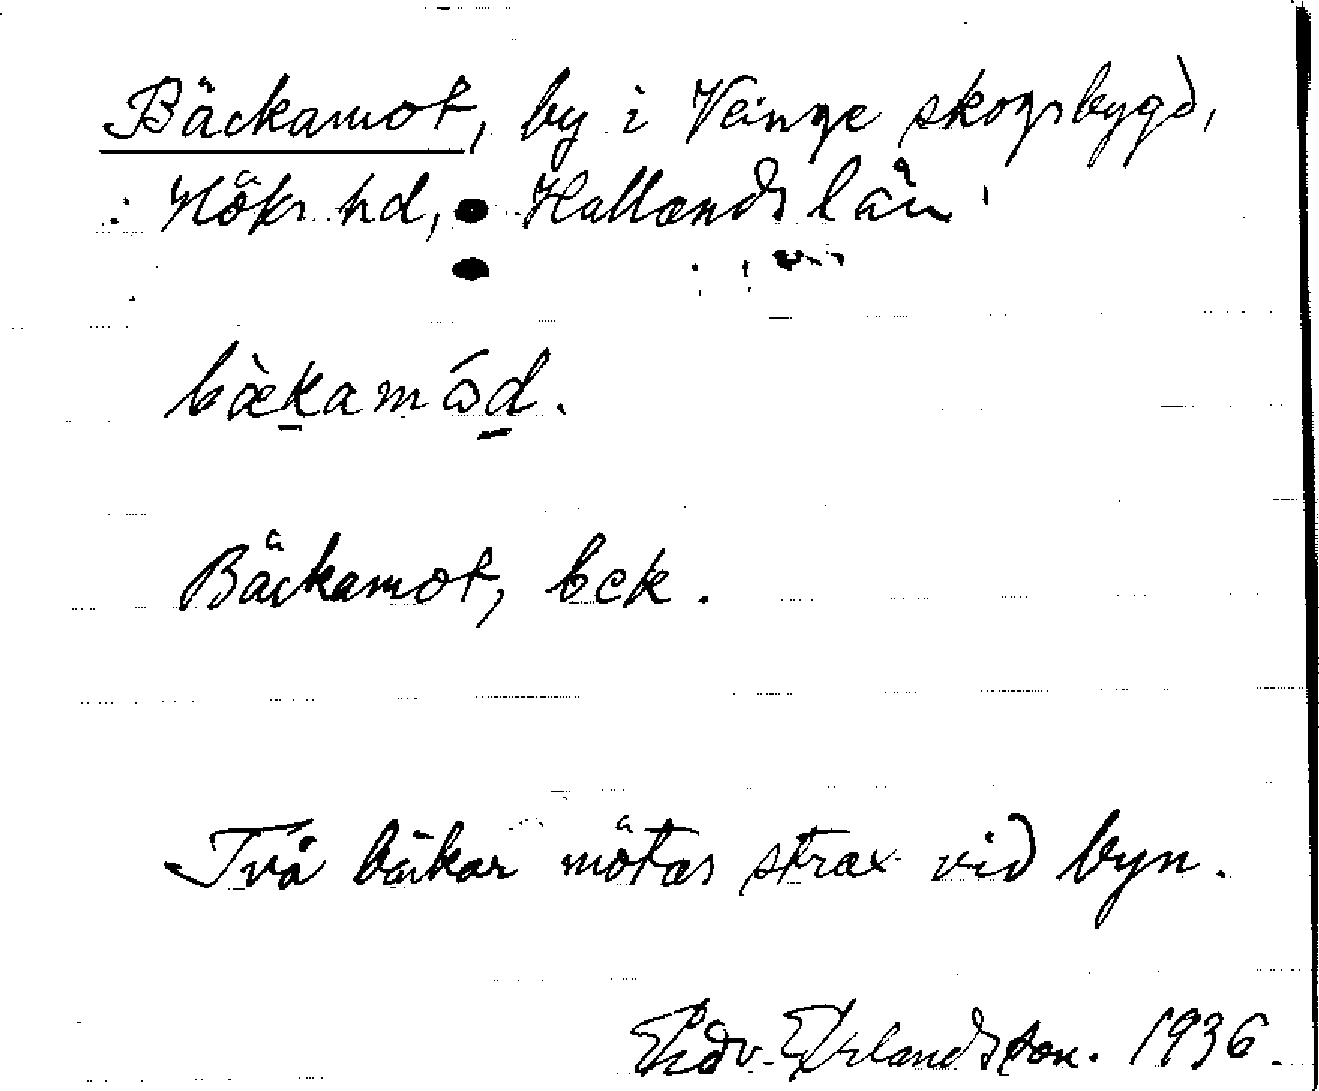 Bäckamot, by i Veinge skogsbygd,
Höks hd, Hallands län
bæ̀kamɷ́d.
Bäckamot, bek.
Två bäckar mötas strax vid byn.
Edv. Erlandsson. 1936.